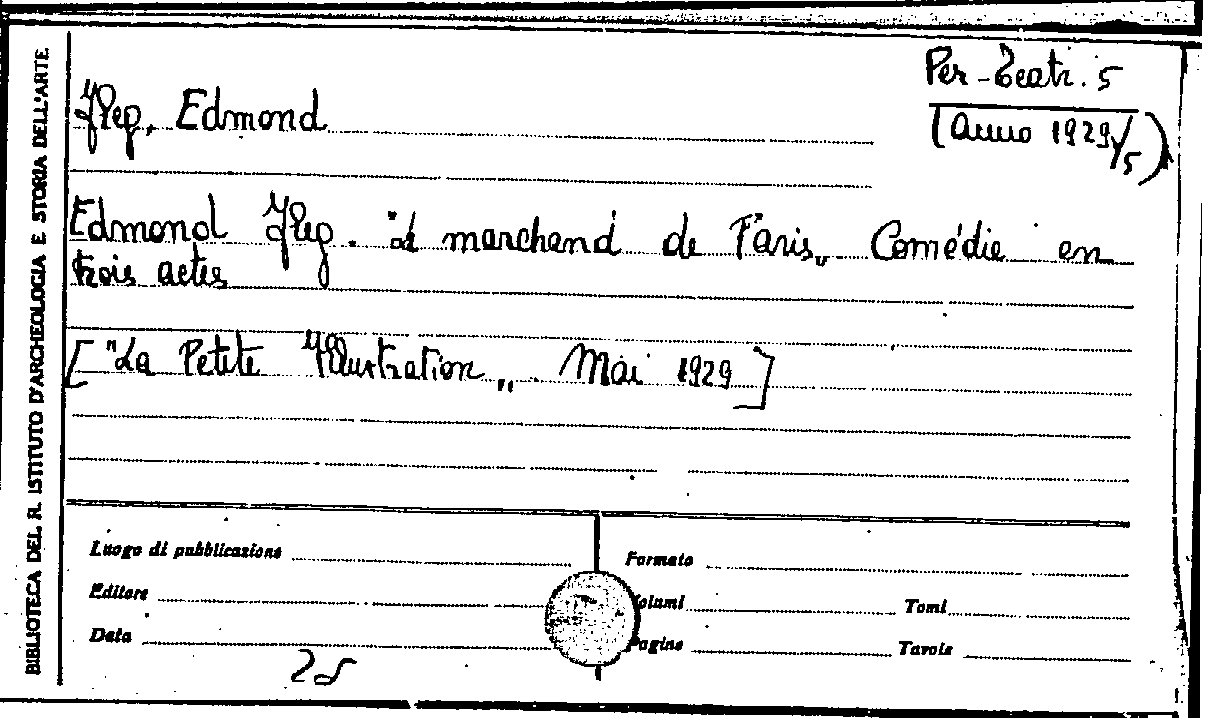 BIBLIOTECA DEL R. ISTITUTO D'ARCHEOLOGIA E STORIA DELL'ARTE
Per-Teatr. 5
(Anno 1929/5)
Fleg, Edmond
Edmond Fleg. "Le marchand de Paris„ Comédie en
trois actes
["La Petite Illustration„. Mai 1929]
Luogo di pubblicazione
Formato
Editore
Volumi
Tomi
Data
Pagine
Tavole
25